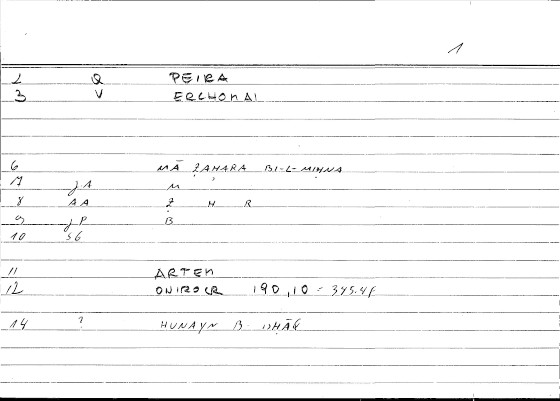 1
2 Q PEIRA
3 V ERCHOMAI
6 MĀ ẒAHARA BI-L-MIḤNA
7 JA M
8 AA Ẓ H R
9 JP B
10 SG
11 ARTEM
12 ONIROCR 190,10 = 345.4f
14 ? HUNAYN B. ISḤĀQ